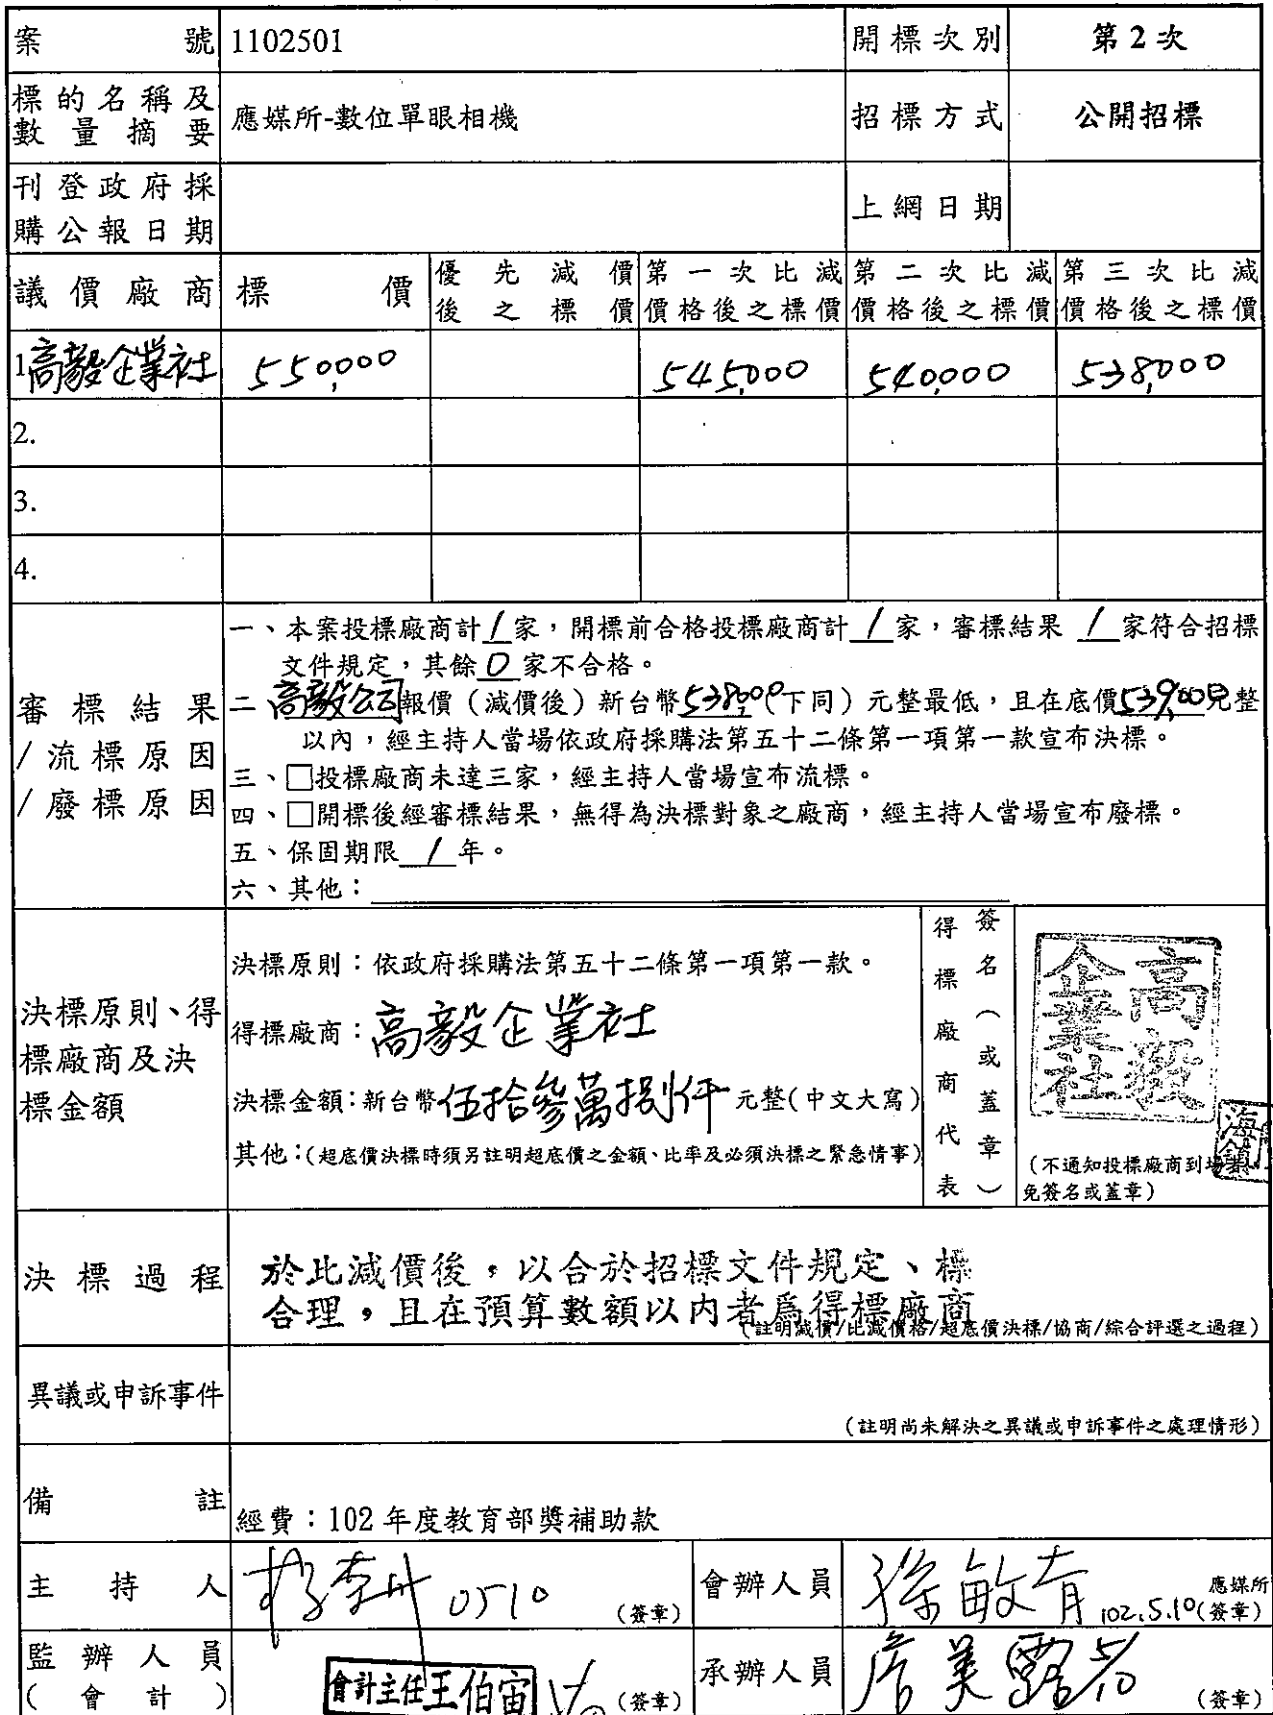 案號 1102501 開標次別 第2次
標的名稱及數量摘要 應媒所-數位單眼相機 招標方式 公開招標
刊登政府採購公報日期 上網日期
議價廠商 標價 優先減價後之標價 第一次比減價格後之標價 第二次比減價格後之標價 第三次比減價格後之標價
1.高毅企業社 550,000 545,000 540,000 538,000
2.
3.
4.
審標結果/流標原因/廢標原因
一、本案投標廠商計1家,開標前合格投標廠商計1家,審標結果1家符合招標
文件規定,其餘0家不合格。
二高毅公司報價(減價後)新台幣538,000(下同)元整最低,且在底價539,000元整
以內,經主持人當場依政府採購法第五十二條第一項第一款宣布決標。
三、□投標廠商未達三家,經主持人當場宣布流標。
四、□開標後經審標結果,無得為決標對象之廠商,經主持人當場宣布廢標。
五、保固期限1年。
六、其他:
決標原則、得標廠商及決標金額
決標原則:依政府採購法第五十二條第一項第一款。
得標廠商:高毅企業社
決標金額:新台幣伍拾參萬捌仟元整(中文大寫)
其他:(超底價決標時須另註明超底價之金額、比率及必須決標之緊急情事)
得標廠商代表簽名(或蓋章)
高毅企業社
(不通知投標廠商到場者,
免簽名或蓋章)
決標過程
於比減價後,以合於招標文件規定、標
合理,且在預算數額以內者為得標廠商
(註明減價/比減價格/超底價決標/協商/綜合評選之過程)
異議或申訴事件
(註明尚未解決之異議或申訴事件之處理情形)
備註 經費:102年度教育部獎補助款
主持人 0510 (簽章) 會辦人員 徐敏有 102.5.10 應媒所(簽章)
監辦人員(會計) 會計主任王伯宙 (簽章) 承辦人員 詹美露 5/10 (簽章)